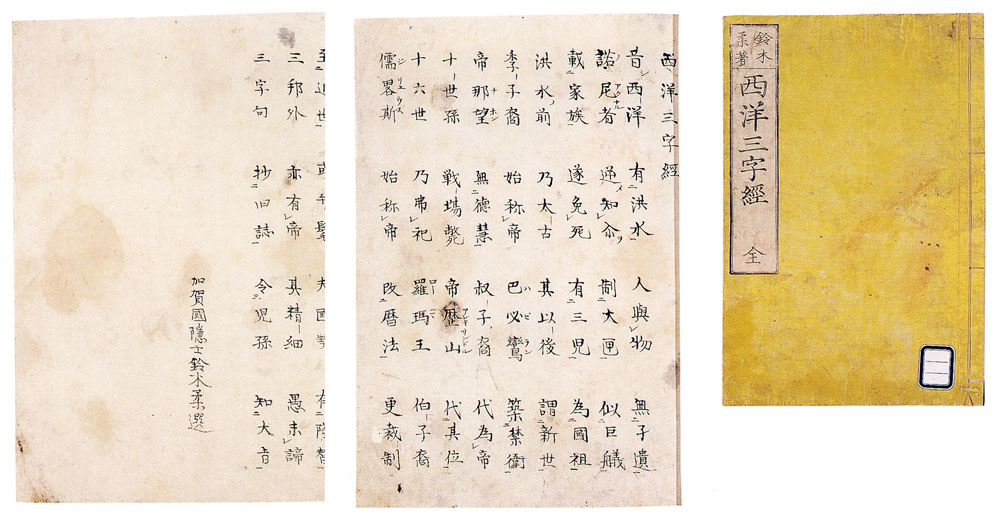 鈴木柔著
西洋三字經 全
西洋三字經
昔西洋 有洪水 人與物 無孑遺
諾尼者 逆知尒 制大匣 似巨艤
載家族 遂免死 有三児 為國祖
洪水前 乃太古 其以後 謂新世
季子裔 始称帝 巴必鸞 築禁衛
帝那望 無德慧 叔子裔 代為帝
十世孫 戦場斃 帝歴山 代其位
十六世 乃弗祀 羅瑪王 伯子裔
儒畧斯 始称帝 改暦法 更裁制
至近世
三邦外 亦有帝 其精細 愚未諦
三字句 抄旧誌 令児孫 知大旨
加賀國隱士鈴木柔選